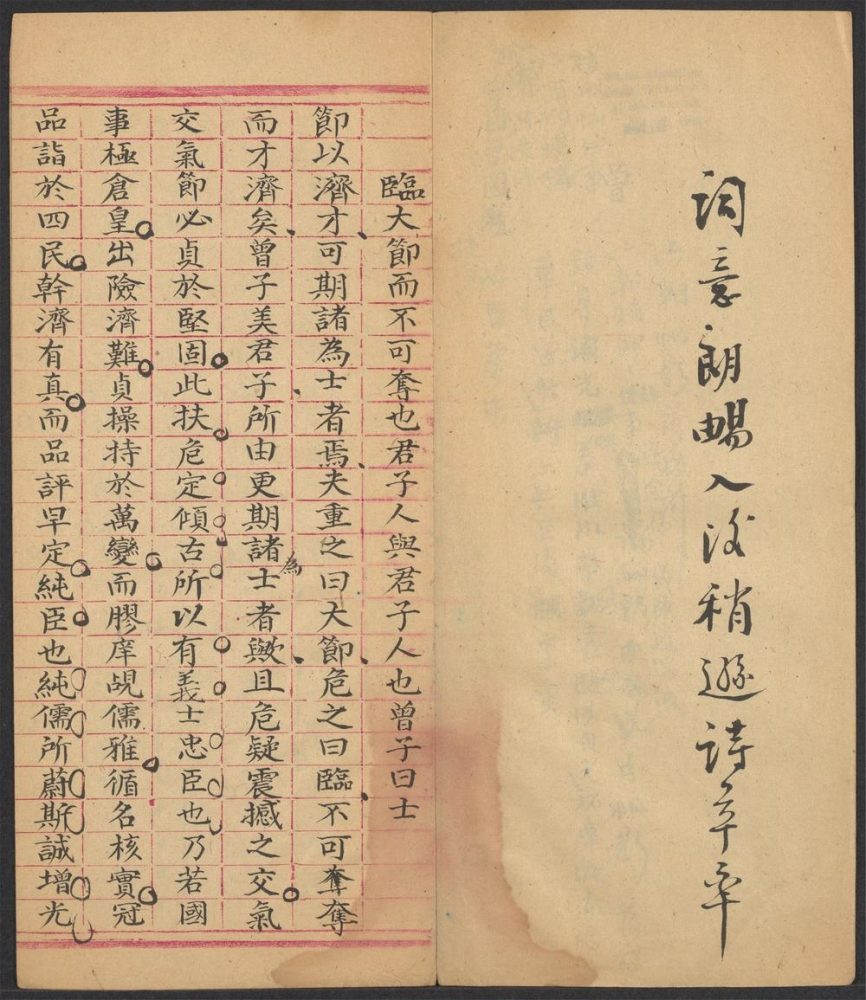 詞意朗暢入後稍遜詩平平
臨大節而不可奪也君子人與君子人也曾子曰士
節以濟才可期諸為士者焉夫重之曰大節危之曰臨不可奪奪
而才濟矣曾子美君子所由更期諸為士者歟且危疑震撼之交氣
交氣節必貞於堅固此扶危定傾古所以有義士忠臣也乃若國
事極倉皇出險濟難貞操持於萬變而膠庠覘儒雅循名核實冠
品詣於四民幹濟有真而品評早定純臣也純儒所蔚斯誠增光